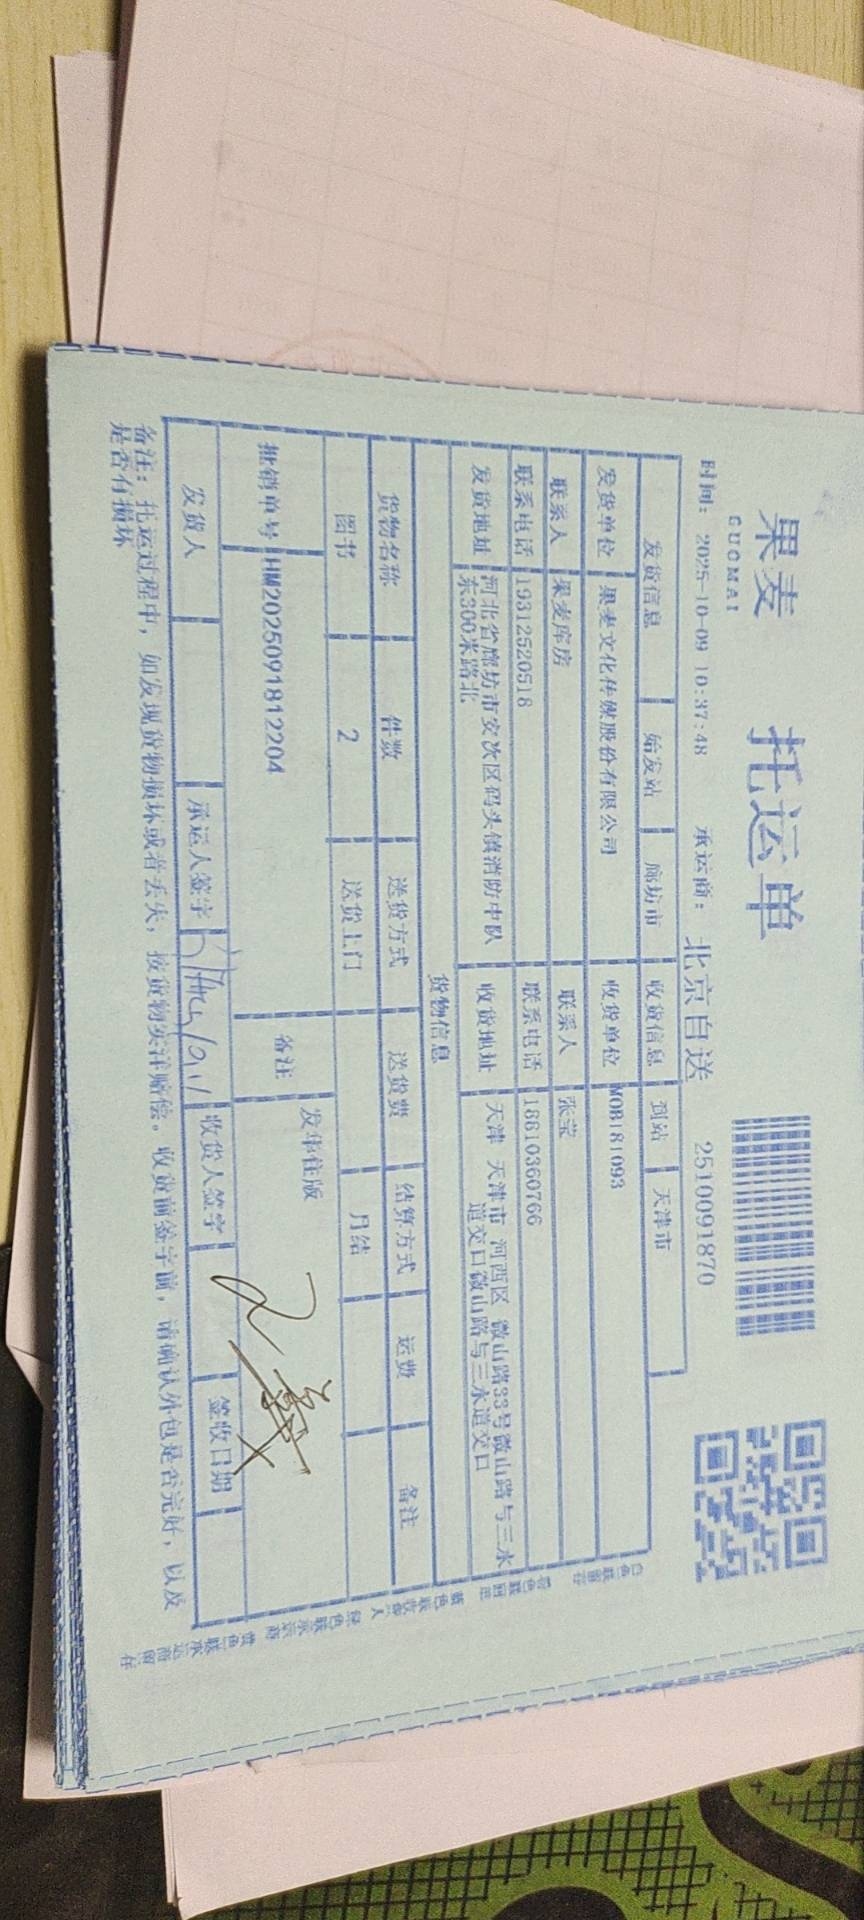 果麦
GUOMAI
托运单
时间：2025-10-09 10:37:48 承运商：北京自送 2510091870
发货信息 始发站 廊坊市 收货信息 到站 天津市
发货单位 果麦文化传媒股份有限公司 收货单位 MOB181093
联系人 果麦库房 联系人 张莹
联系电话 19312520518 联系电话 18810360766
发货地址 河北省廊坊市安次区码头镇消防中队东300米路北 收货地址 天津 天津市 河西区 微山路33号微山路与三水道交口微山路与三水道交口
货物信息
货物名称 件数 送货方式 送货费 结算方式 运费 备注
图书 2 送货上门 月结
批销单号 HM2025091812204 备注 发华住版
发货人 承运人签字 收货人签字 签收日期
备注：托运过程中，如发现货物损坏或者丢失，按货物实洋赔偿。收货前签字前，请确认外包是否完好，以及
是否有损坏
白色联留存
蓝色联收货人
绿色联承运商
黄色联承运商留存